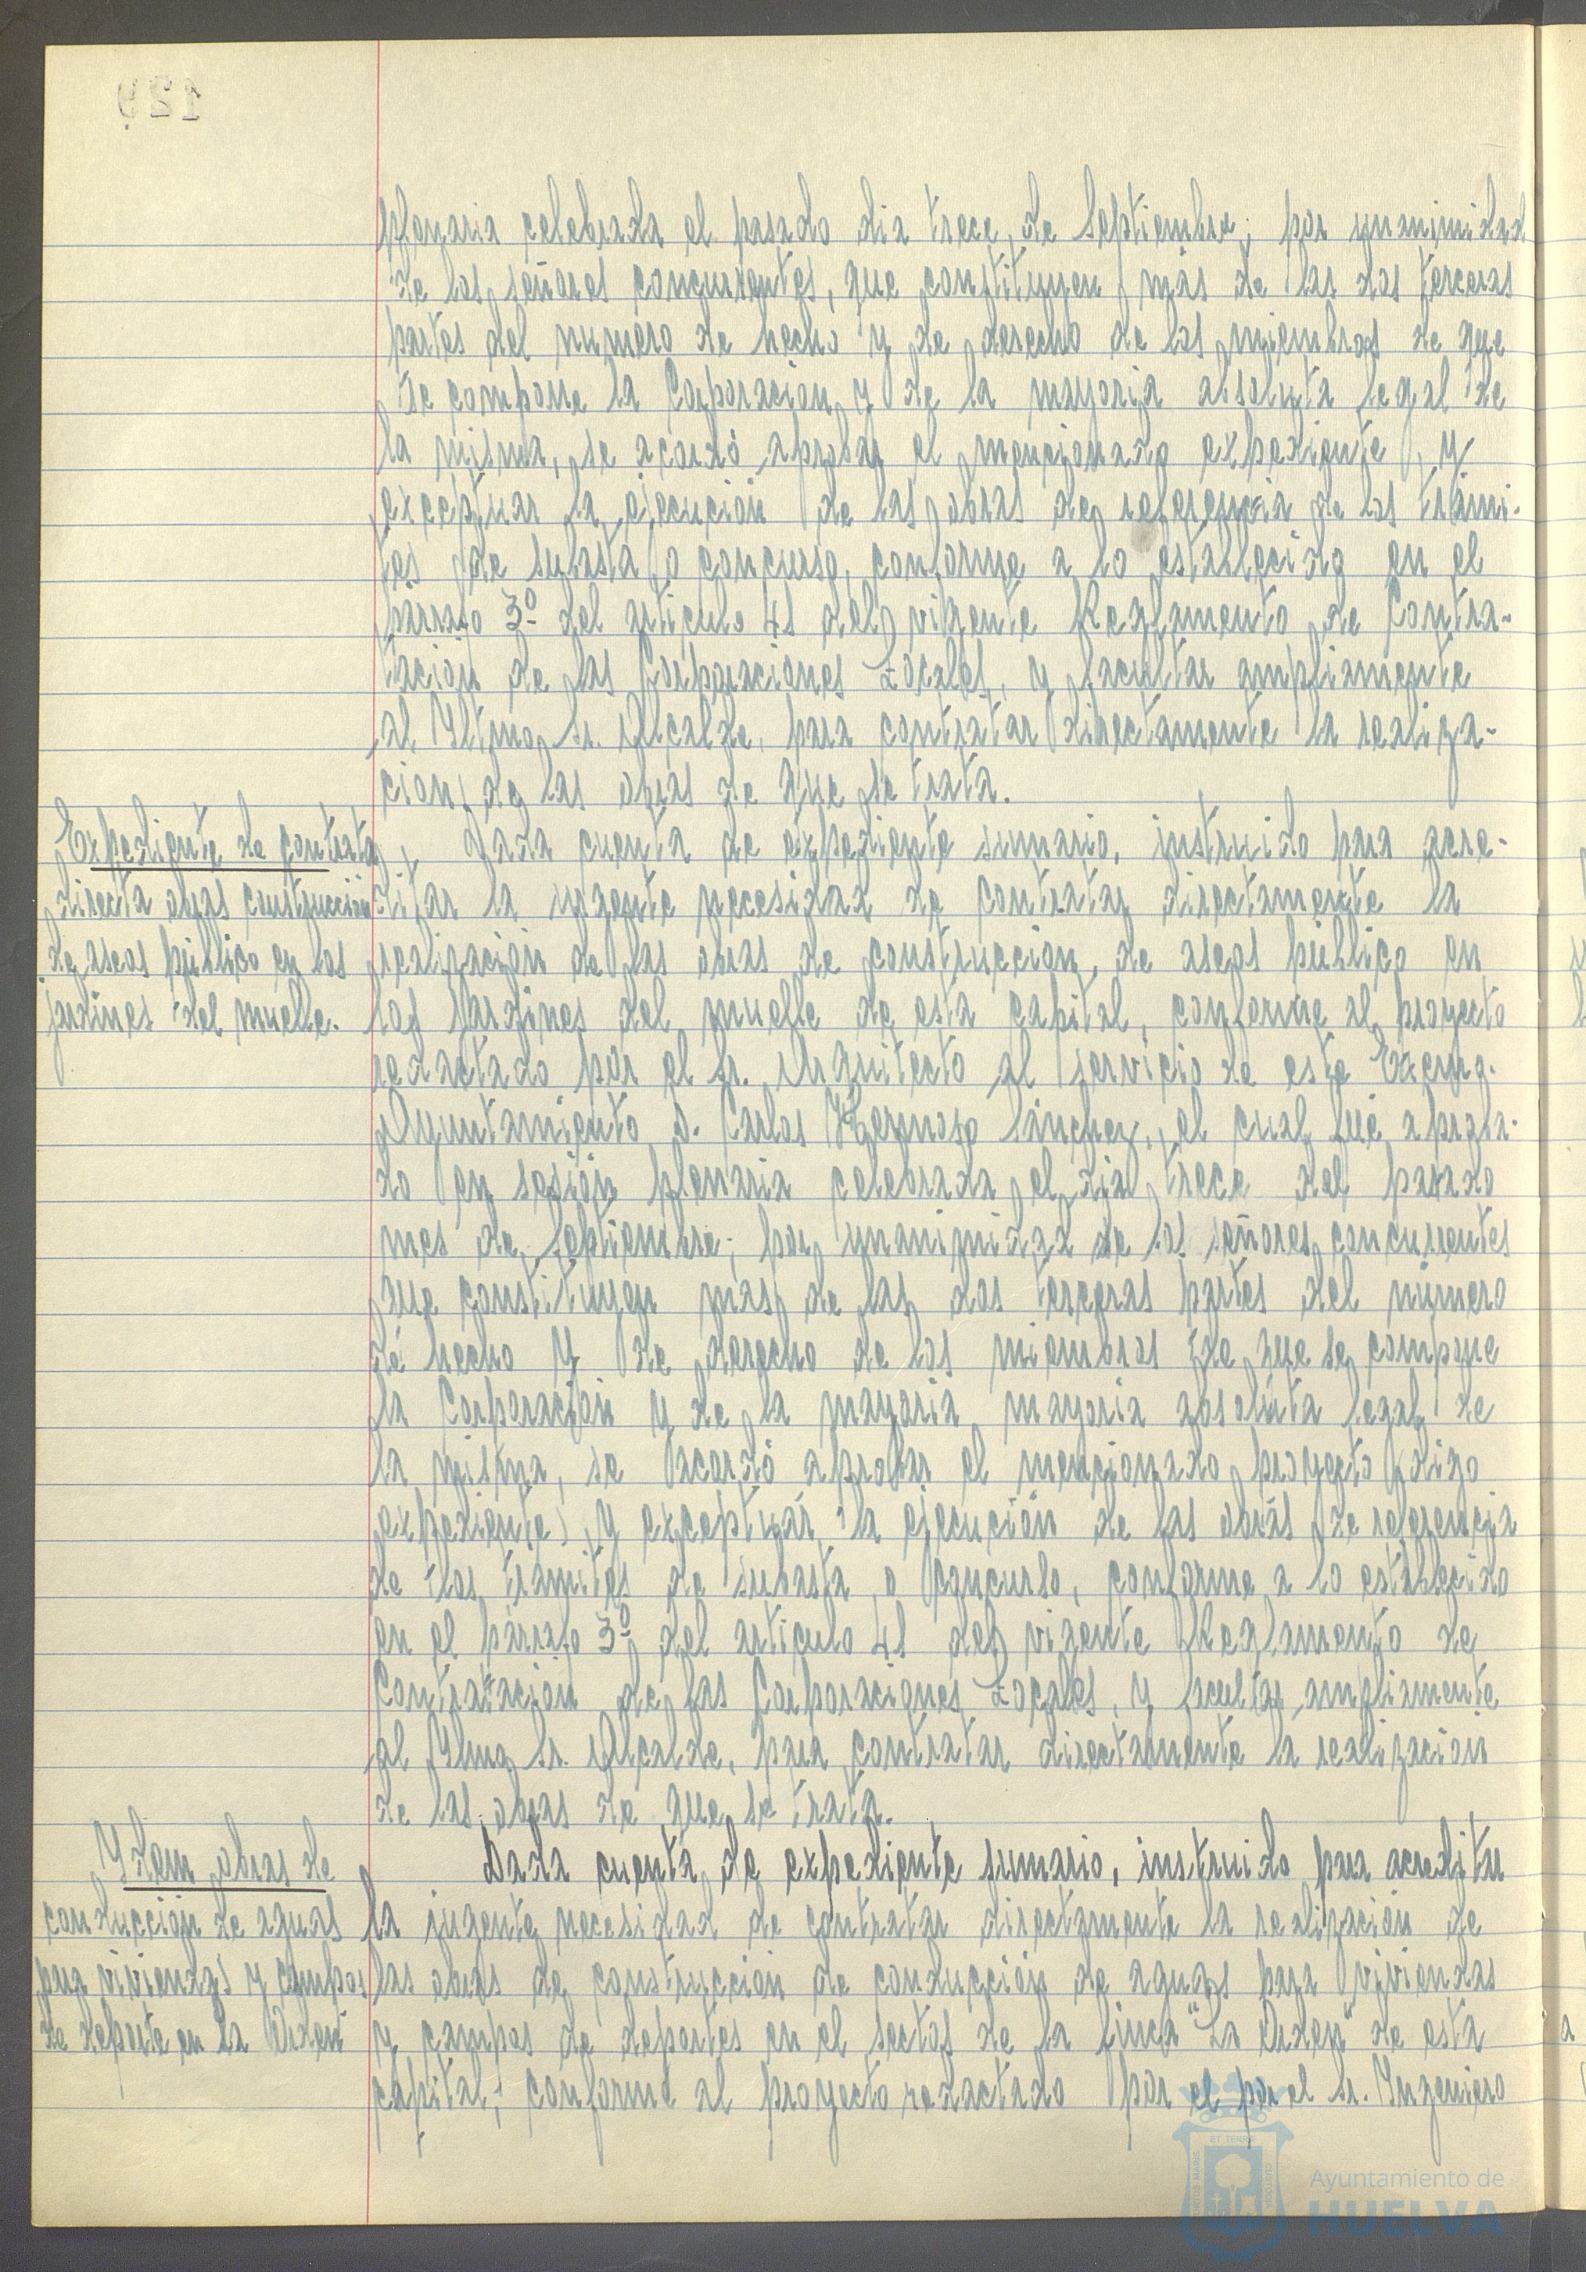 129
plenaria celebrada el pasado dia trece de Septiembre; por unanimidad
de los señores concurrentes, que constituyen más de las dos terceras
partes del numero de hecho y de derecho de los miembros de que
se compone la Corporacion y de la mayoria absoluta legal de
la misma, se acordó aprobar el mencionado expediente, y
exceptuar la ejecución de las obras de referencia de los trámi-
tes de subasta o concurso, conforme a lo establecido en el
párrafo 3º del articulo 41 del vigente Reglamento de Contra-
tacion de las Corporaciones Locales, y facultar ampliamente
al Iltmo. Sr. Alcalde, para contratar directamente la realiza-
cion de las obras de que se trata.
Expediente de contrata
directa obras construcción
de aseos público en los
jardines del muelle.
Dada cuenta de expediente sumario, instruido para acre-
ditar la urgente necesidad de contratar directamente la
realización de las obras de construccion, de aseos público en
los Jardines del muelle de esta capital, conforme al proyecto
redactado por el Sr. Arquitecto al servicio de este Excmo.
Ayuntamiento D. Carlos Hermoso Sánchez, el cual fué aproba-
do en sesión plenaria celebrada el dia trece del pasado
mes de Septiembre; por unanimidad de los señores concurrentes
que constituyen mas de las dos terceras partes del número
de hecho y de derecho de los miembros de que se compone
la Corporación y de la mayoria mayoria absoluta legal de
la misma, se acordó aprobar el mencionado proyecto (digo
expediente), y exceptuár la ejecución de las obrás de referencia
de los tramites de subasta o concurso, conforme a lo establecido
en el párrafo 3º del articulo 41 del vigente Reglamento de
Contratación de las Corporaciones Locales, y facultar ampliamente
al Ilmo. Sr. Alcalde, para contratar directamente la realización
de las obras de que se trata.
Ydem obras de
conducción de aguas
para viviendas y campos
de deporte en la Orden
Dada cuenta de expediente sumario, instruido para acreditar
la jurgente necesidad de contratar directamente la realización de
las obras de construcción de conducción de aguas para viviendas
y campos de deportes en el sector de la finca "La Orden" de esta
capital; conforme al proyecto redactado por el por el Sr. Ingeniero
Ayuntamiento de
HUELVA